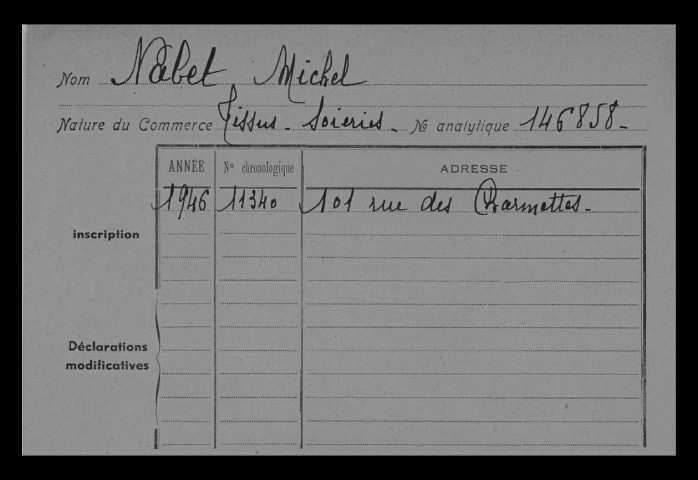 Nom Nabet Michel
Nature du Commerce Tissus - Soieries - No analytique 146858 -
ANNÉE No chronologique ADRESSE
1946 11340 101 rue des Charmettes -
inscription
Déclarations
modificatives